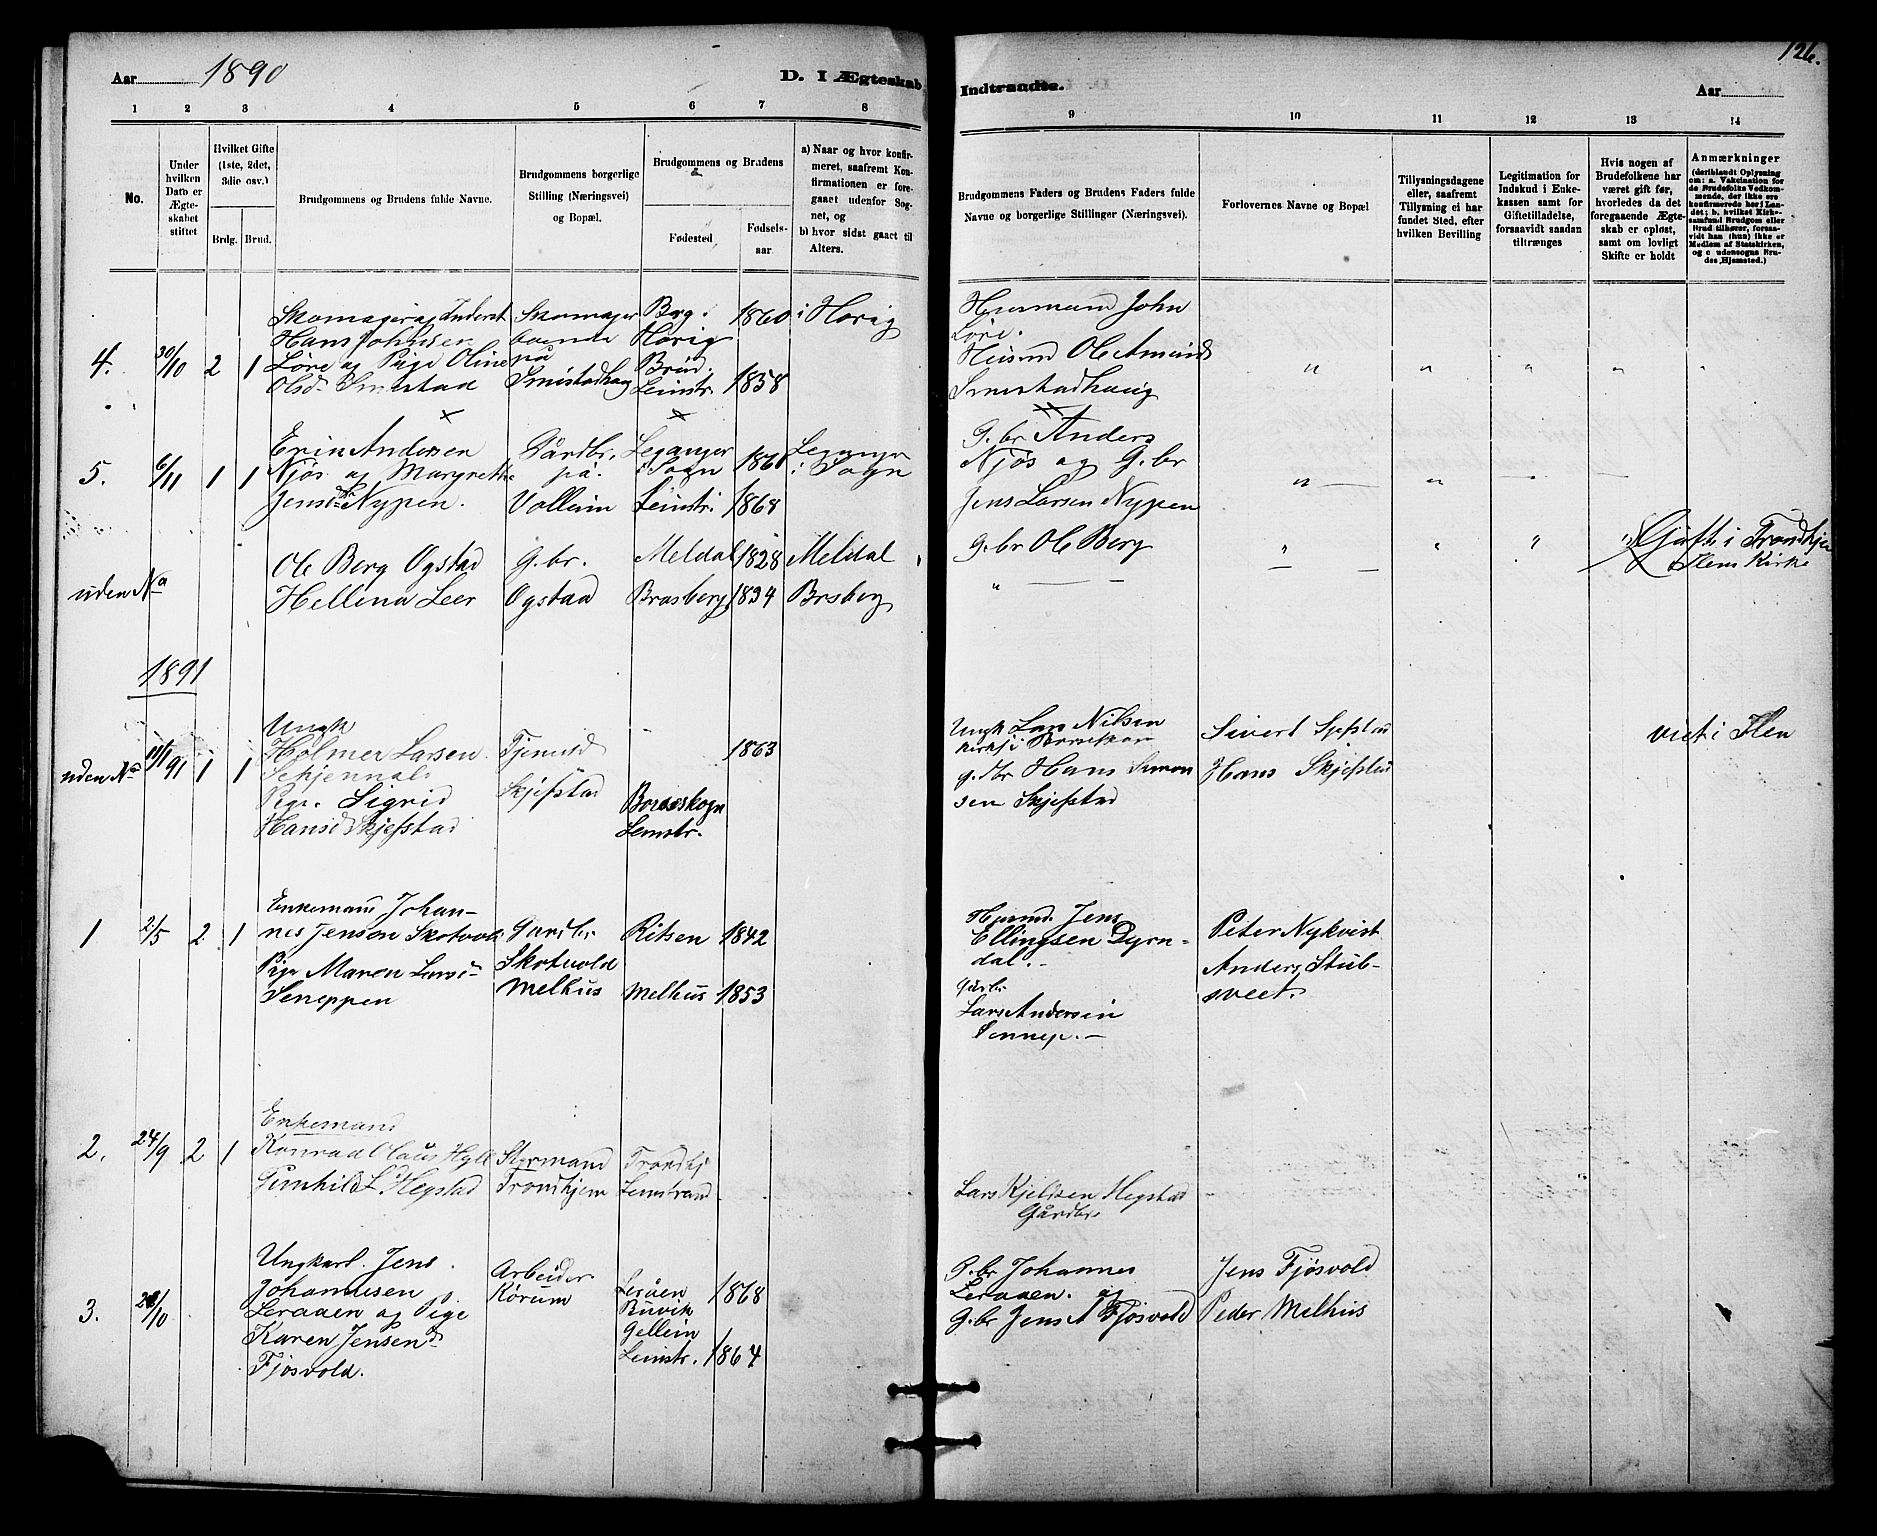 Aar 1890
D. I Ægteskab
Indtraadte.
126.
Aar
1 2 3 4 5 6 7 8 9 10 11 12 13 14
No.
Under
hvilken
Dato er
Ægte-
skabet
stiftet
Hvilket Gifte
(1ste, 2det,
3die osv.)
Brdg. Brud.
Brudgommens og Brudens fulde Navne.
Brudgommens borgerlige
Stilling (Næringsvei)
og Bopæl.
Brudgommens og Brudens
Fødested
Fødsels-
aar
a) Naar og hvor konfir-
meret, saafremt Kon-
firmationen er fore-
gaaet udenfor Sog-
net, og
b) hvor sidst gaaet til
Alters.
Brudgommens Faders og Brudens Faders fulde
Navne og borgerlige Stillinger (Næringsvei).
Forlovernes Navne og Bopæl
Tillysningsdagene
eller, saafremt
Tillysning ei har
fundet Sted, efter
hvilken Bevilling
Legitimation for
Indskud i Enke-
kassen samt for
Giftetilladelse,
forsaavidt saadan
tiltrænges
Hvis nogen af
Brudefolkene har
været gift før,
hvorledes da det
foregaaende Ægte-
skab er opløst,
samt om lovligt
Skifte er holdt
Anmærkninger
(deriblandt Oplysning
om: a. Vakcination for
de Brudefolks Vedkom-
mende, der ikke ere
konfirmerede her i Lan-
det; b. hvilket Kirke-
samfund Brudgom eller
Brud tilhører, forsaa-
vidt han (hun) ikke er
Medlem af Statskirken,
og c udensogns Bru-
des Hjemsted.)
4. 30/10 2 1
Skomager og Inderst
Hans Johnsen
Løre og Pige Oline
Olsd. Smestad
Skomager
boende
på
Smistadhaug
Borg i
Horig
Brud.
Leinstr.
1860
1858
i Horig
Huusmand John
Løre.
Husmd Ole Amunds
Smestadhaug
5. 6/11 1 1
Erin Andersen
Njøs og Margrethe
Jensd. Nypen.
Gårdbr.
på
Vollum
Leganger
i Sogn
Leinstr.
1861
1868
Leganger
i Sogn
G.br Anders
Njøs og G.br
Jens Larsen Nypen
uden No
Ole Berg Ogstad
Hellena Leer
G.br.
Ogstad
Meldal
Brasberg
1828
1834
Meldal
Brsberg
G.br Ole Berg
Gift i Trondhjem
Ilens Kirke
1891
uden No 11/1 91 1 1
Ungk
Holmer Larsen
Schjenvald
Pige. Sigrid
Hansd Skjefstad
Tjenesd
Skjefstad
Borseskogn
Leinstr.
1863
Ungk Lars Nilsen
g.dbr Hans Simon
sen Skjefstad
Sivert Sjefstad
Hans Skjefstad
viet i Ilen
1 2/5 2 1
Enkemand Johan-
nes Jenson Skotvold
Pige Maren Larsd
Seneppen
Gardbr
Skotvold
Melhus
Ritsen
Melhus
1842
1853
Husmd. Jens
Ellingsen Dyrn-
dal.
Gårdbr
Lars Andersen
Sennep.
Peter Nykvist
Anders Stub-
sveet.
2. 24/9 2 1
Enkemand
Konrad Olaus Hyll
Gunhild L. Hegstad
Styrmand
Trondhjem
Trondhj
Leinstrand
Lars Kjelsen Hegstad
Gårdbr
3. 28/10
Ungkarl. Jens
Johannesen
Leraaen og Pige
Karen Jensend
Fjøsvold.
Arbeider
Kørum
Leråen
Buvik
Gellein
Leinstr.
1868
1864
G.br Johannes
Leraaen. og
G.br Jens A Fjøsvold
Jens Fjøsvold
Peder Melhus